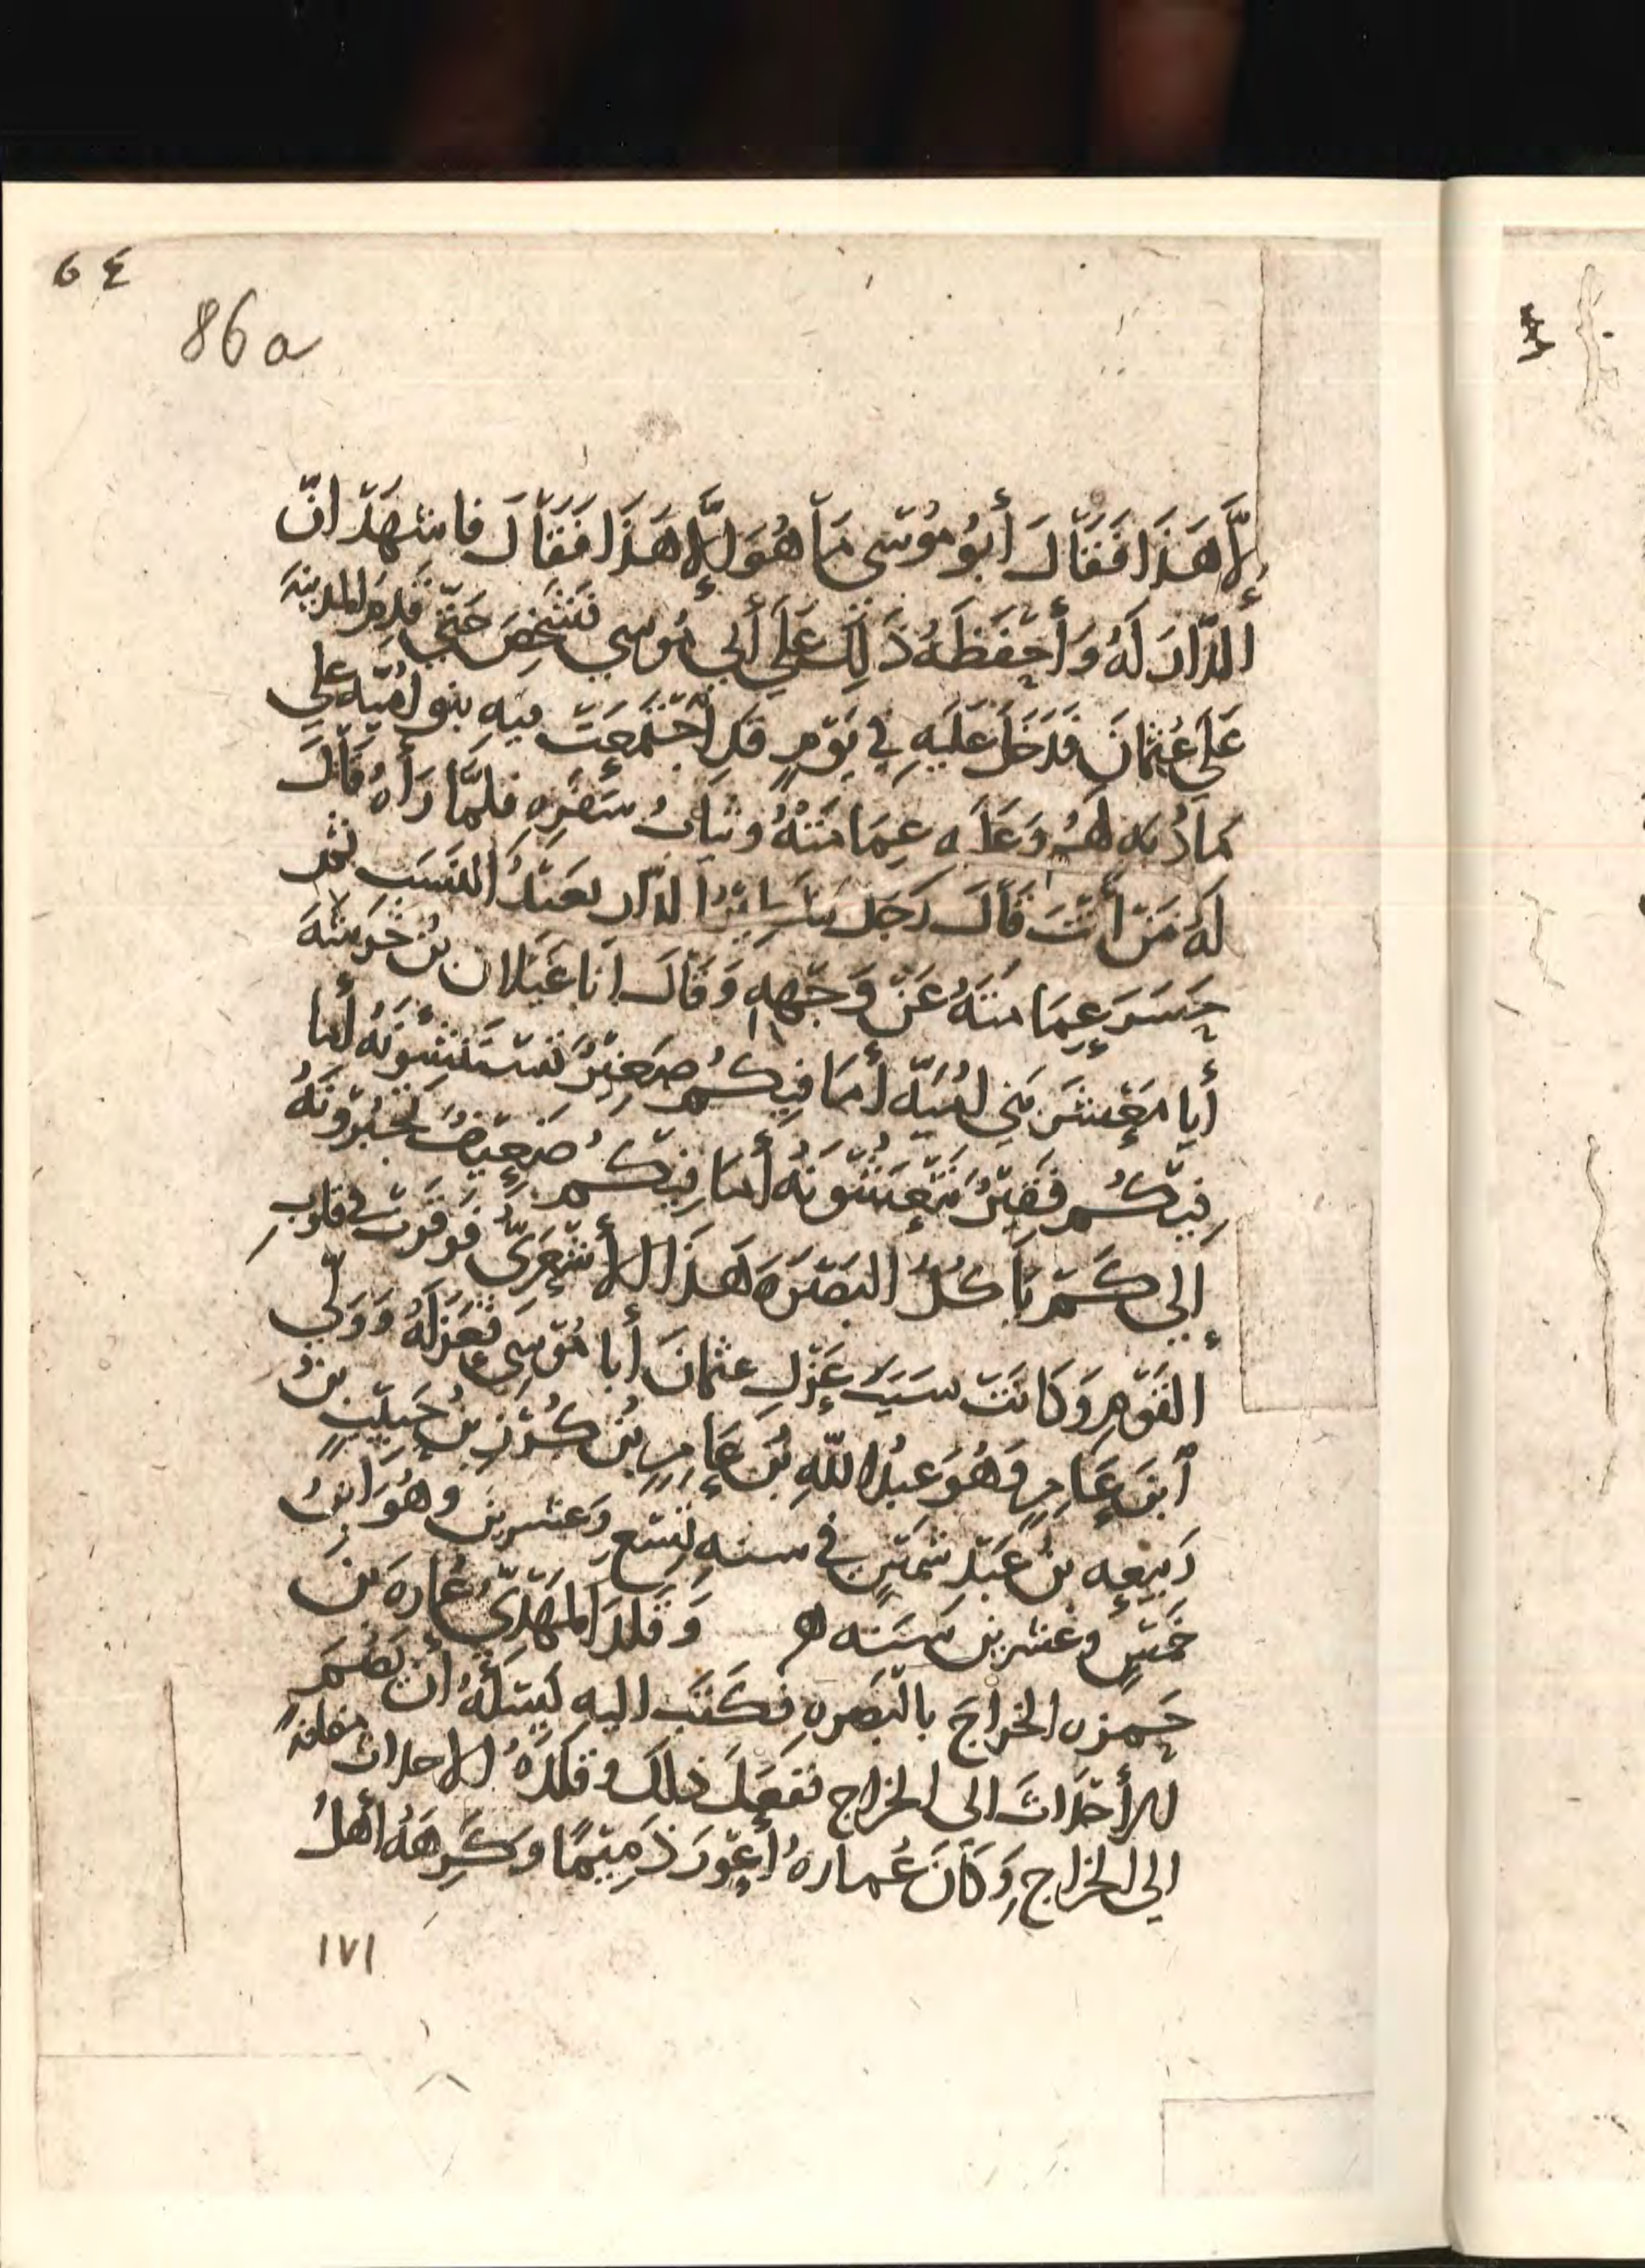 ٤٦
86a
إِلَّا هَذَا فَقَالَ أَبُو مُوسَى مَا هُوَ إِلَّا هَذَا فَقَالَ فاشهَدْ انّ
الدَّارَ لَهُ وَأَحْفَظَهُ ذَلِكَ عَلَى أَبِي مُوسي فَشَخِصَ حَتّي قَدِمَ المدينَةَ
عَلَى عُثمانَ فَدَخَلَ عَلَيْهِ فِي يَوْمٍ قَدِ اجْتَمَعَتْ فِيهِ بنو اُمَيّه علي
وَعَلَيه عِمَامَتَهُ وثيابُ سَفَرِهِ فَلَمَّا رَأَهُ قَالَ
لَهُ مَنْ أَنْتَ قَالَ رَجُل الدّار بَعَيْدُ النَسَبِ ثم
حَسَرَ عِمَامَتَهُ عَنْ وَجْهِهِ وَقَالَ اَنَا غَيْلان بنُ خَرَشَهَ
أَيا مَعْشَرَ بَني اُمَيّه أَمَا فِيكُم صَغِيْرٌ تَسْتَنْشِونَهُ أَما
فِيْكُم فَقِيْرٌ تُنْعِشُونَهُ أَمَا فِيْكُم ضَعِيْفٌ تجْبُرُوْنَهُ
إِلَي كَمْ يَأكُلُ البَصْرَهَ هَذَا الأَشْعَرِيُّ فَوَقَرَتْ في قلوبِ
القَوْمِ وَكَانَتْ سَبَبَ عَزْلِ عثمَانَ أَبا مُوْسَى فَعَزَلَهُ وَوَلّي
ابْنَ عَامِرٍ وَهُوَ عبدُ اللّهِ بْنُ عَامِرِ بْنِ كُرَيْزِ بنِ حَبِيْبِ بْنِ
رَبِيْعِه بْنِ عَبْدِ شَمْسٍ في سنهِ تِسْعٍ وَعشرينَ وهُوَ ابنُ
خَمْسٍ وعشرينَ سَنَه ه وَقَلدَ المَهْدِيُّ عُمارهَ بْنَ
حَمزه الخَراجَ بالْبَصَرهِ فكَتَبَ اليهِ يَسْئَلُهُ أَنْ يَضُمَّ
الأَحْدَاثَ الى الخراج فَفَعَلَ ذلكَ وقلدَهُ الاحداث مضافهً
إلى الخراج وَكَانَ عُمارهُ أَعْوَرَ ذَمِيْمًا وكَرِهَهُ أَهْلُ
١٧١